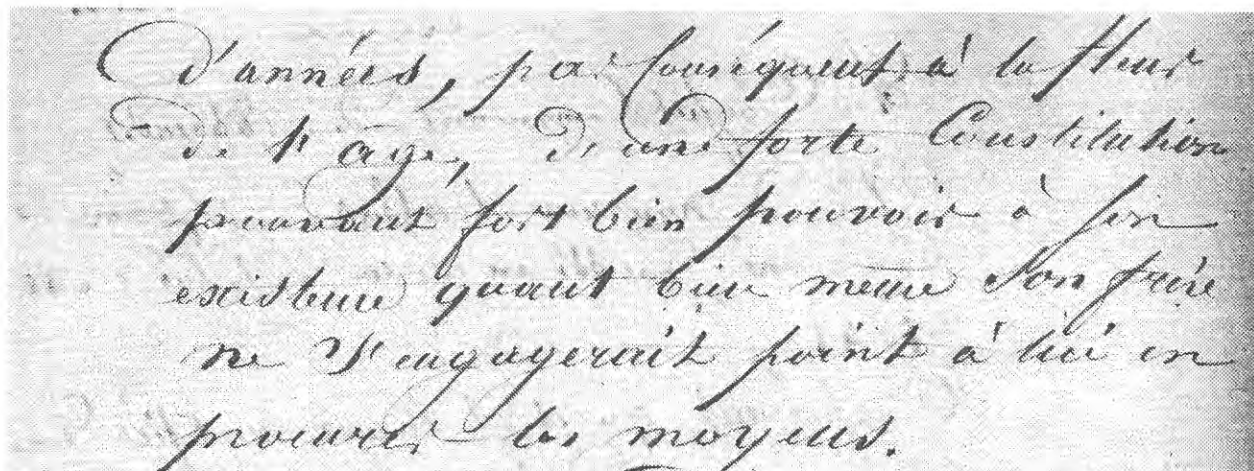 d'années, par Conséquent à la fleur
de l'âge, d'une forte Constitution
pouvant fort bien pouvoir à son
existence quant bien meme son frère
ne s'engagerait point à lui en
procurer les moyens.